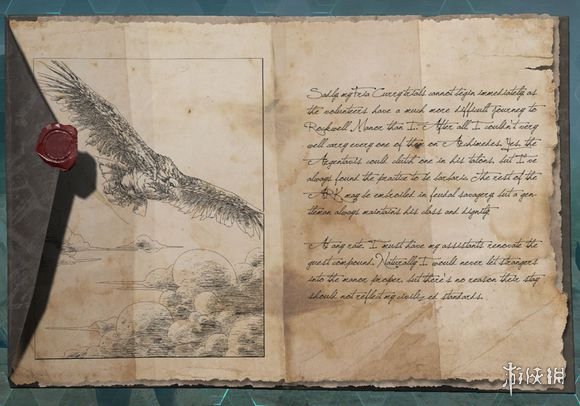 Sadly my Fria Curry trials cannot begin immediately, as
the volunteers have a much more difficult journey to
Rockwell Manor than I. After all I couldn't very
well carry every one of them on Archimedes. Yes, the
Argentavis could clutch one in its talons, but I've
always found the practice to be barbaric. The rest of the
ARK may be embroiled in feudal savagery but a gen-
tleman always maintains his class and dignity.
At any rate, I must have my assistants renovate the
guest compound. Naturally I would never let strangers
into the manor proper, but there's no reason their stay
should not reflect my civilized standards.
游侠网